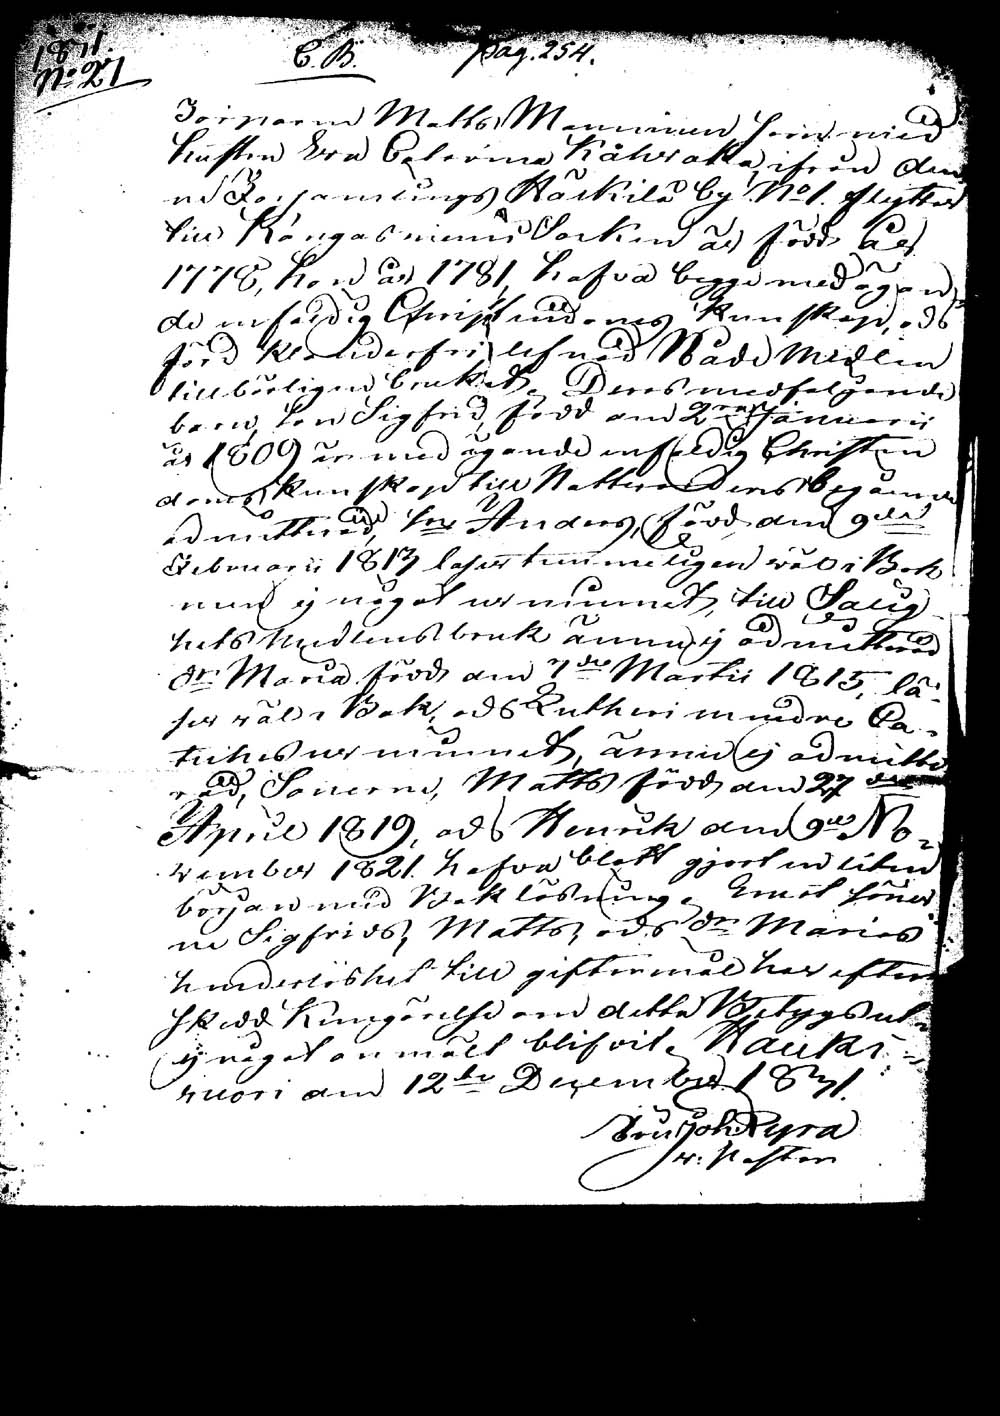 1831.
No 21
C. B. pag. 254.
Torparen Matts Manninen som med
hustru Eva Catarina ifrån den
na Församlings Häkkilä by No 1. flyttar
till Kangasniemi Socken är född år
1778, hon år 1781, hafva begge medägan
de enfaldig Christendoms kunskap, och
förd klanderfri lefnad Nåde Medlen
tillbörligen brukat. Deras medfölgande
barn, son Sigfrid, född den 2 Januarii
år 1809 är med ägande enfaldig Christen
doms kunskap till Nattvardens begående
admitterad, son Anders, född den 9de
Februarii 1813 läser temmeligen väl i Bok
men ej något ur minnet, till Salig
hets Medlens bruk ännu ej admitterad
dr Maria född den 7de Martii 1815, lä-
ser väl i Bok, och Lutheri mindre Ca-
teches ur minnet, ännu ej admitte
rad, Sönerne, Matts född den 27de
April 1819, och Henrik den 9de No-
vember 1821. hafva blott gjort en liten
början med Bok läsning. Emot Söner
ne Sigfrids, Matts, och dr Marias
hinderlöshet till giftermål har efter
skedd Kungörelse om detta Betygs ut-
ej något anmält blifvit. Hauki-
vuori den 12te December 1831.
Joh. Pyra
v. Pastor